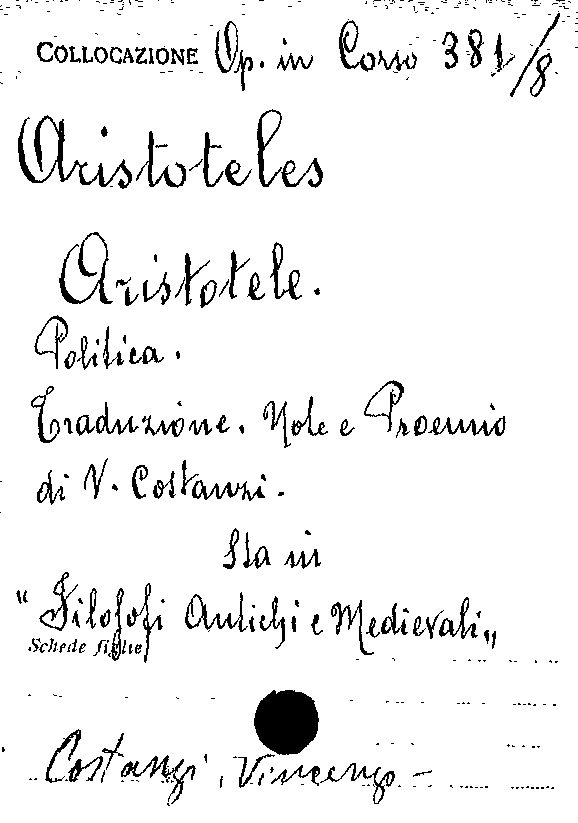 COLLOCAZIONE Op. in Corso 381/8
Aristoteles
Aristotele.
Politica.
Traduzione. Note e Proemio
di V. Costanzi.
Sta in
"Filosofi Antichi e Medievali"
Schede figlie
Costanzi, Vincenzo -